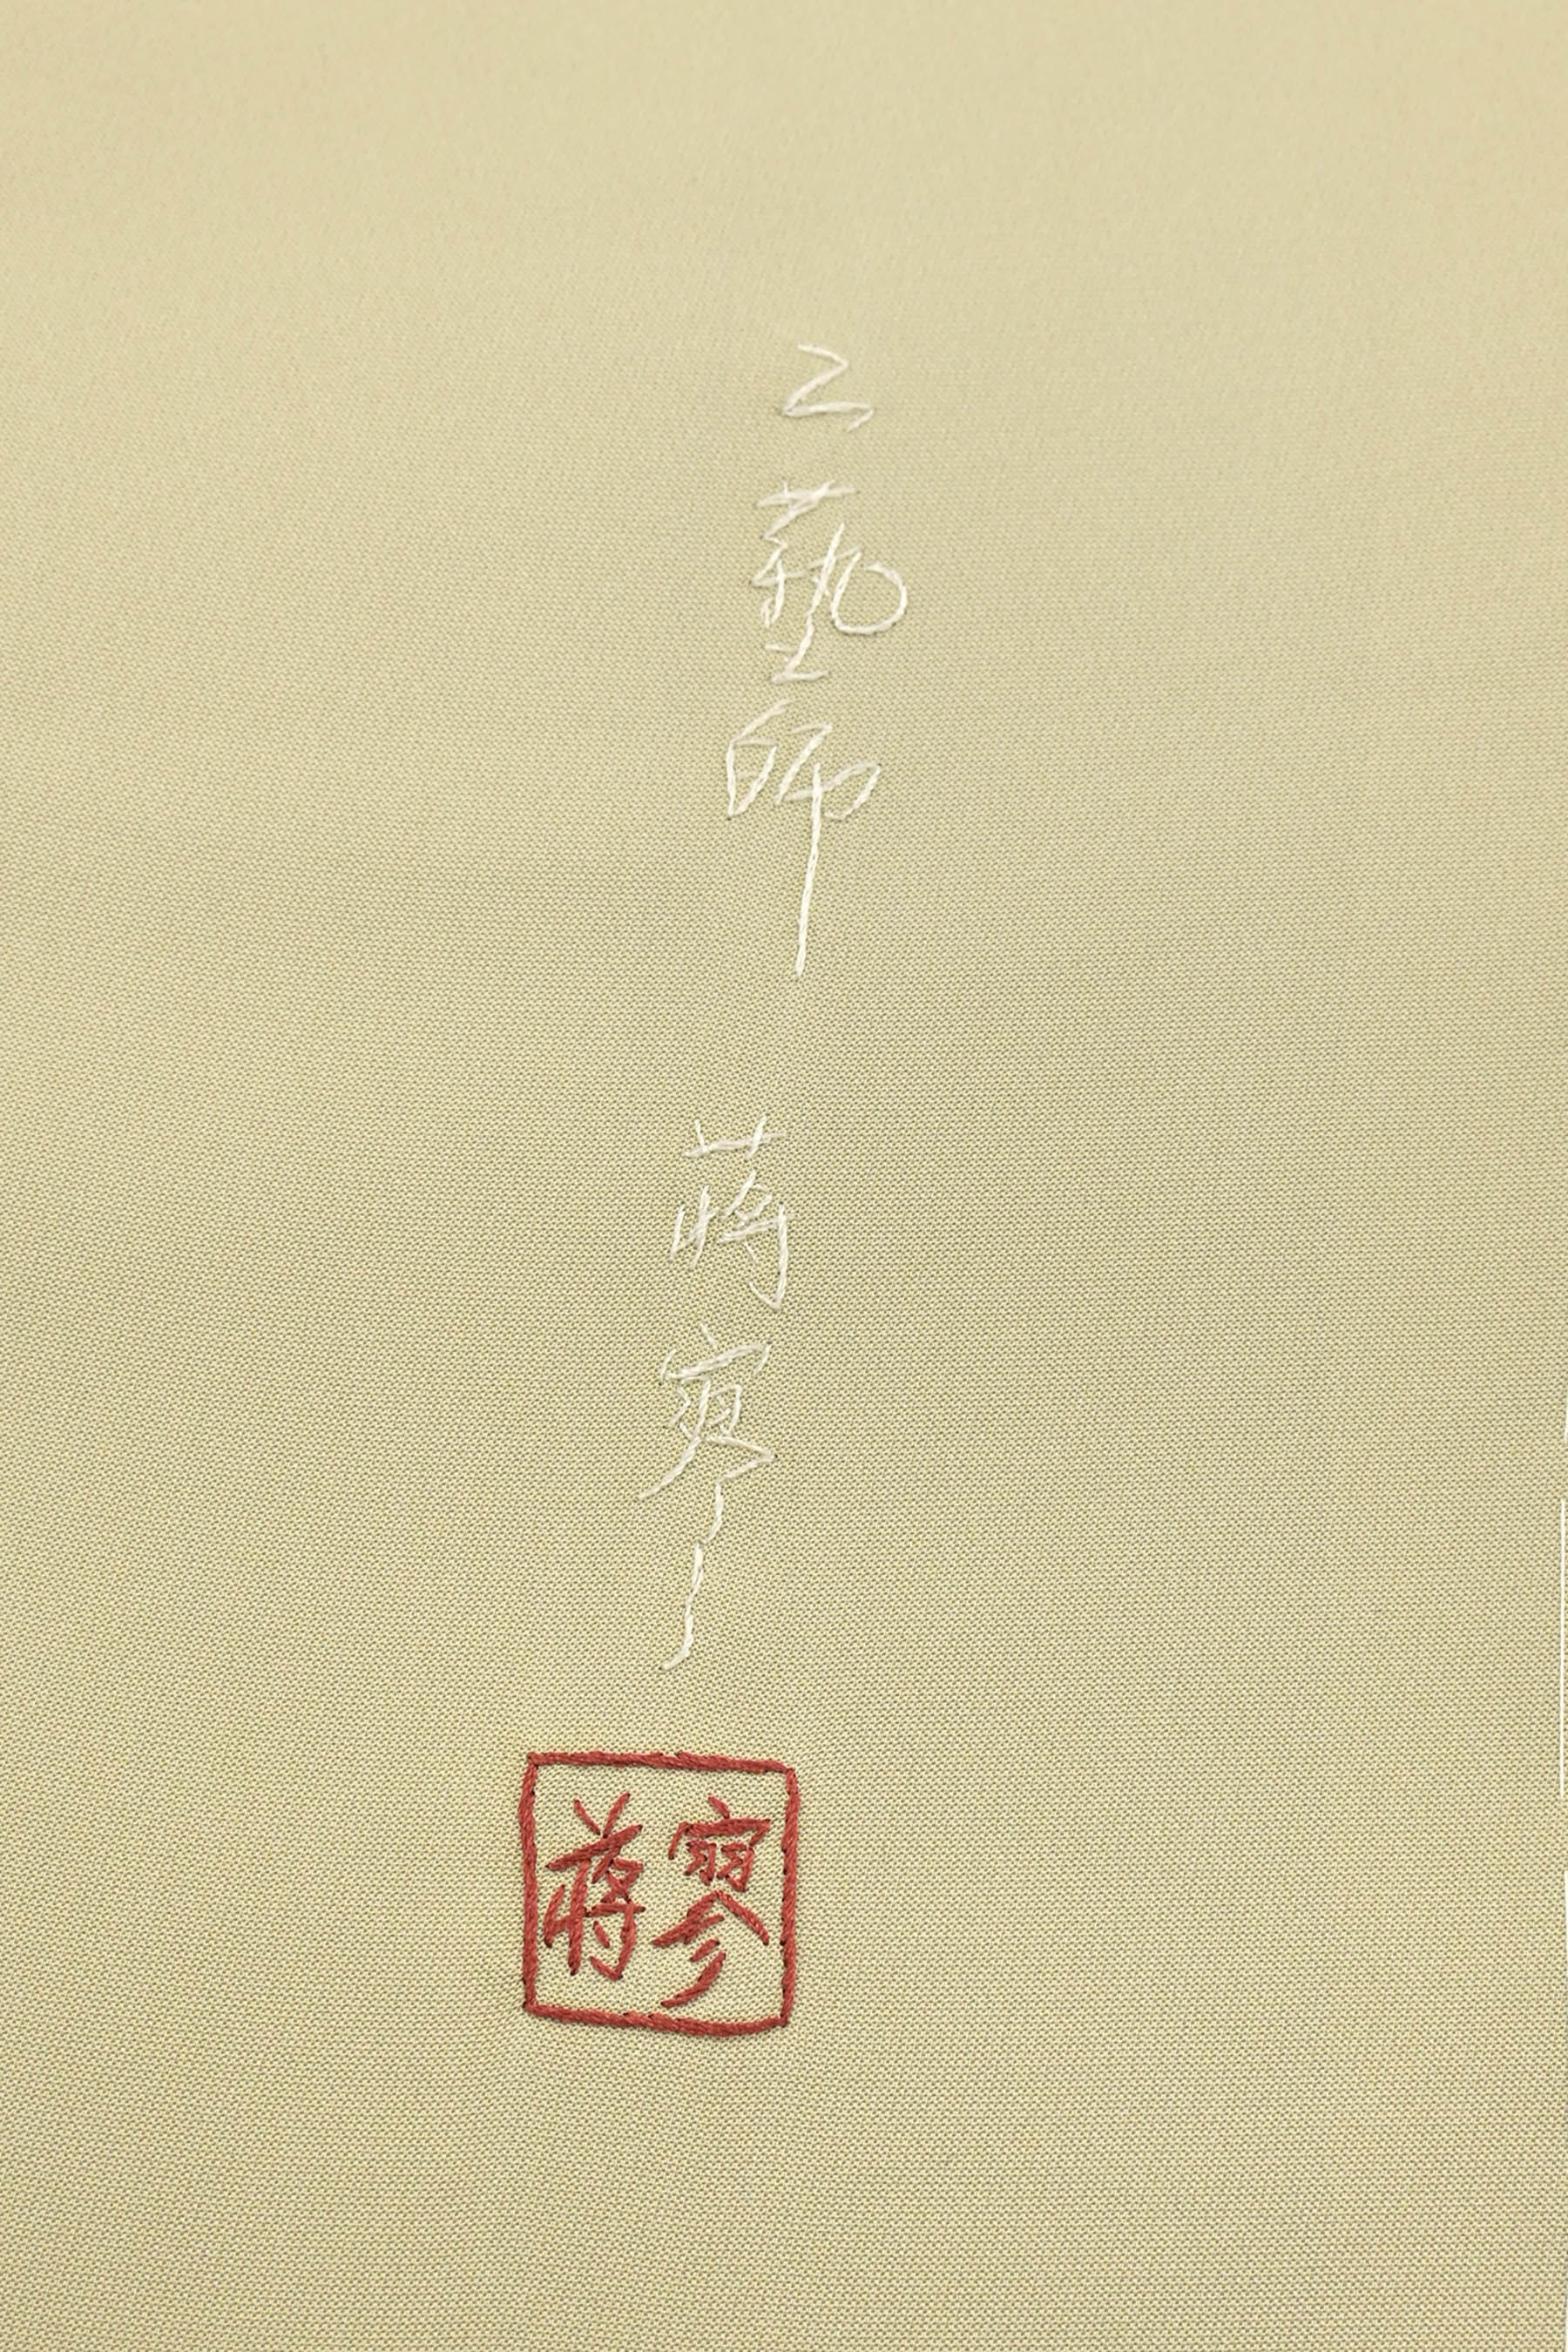 工藝師 蔣寥
蔣寥